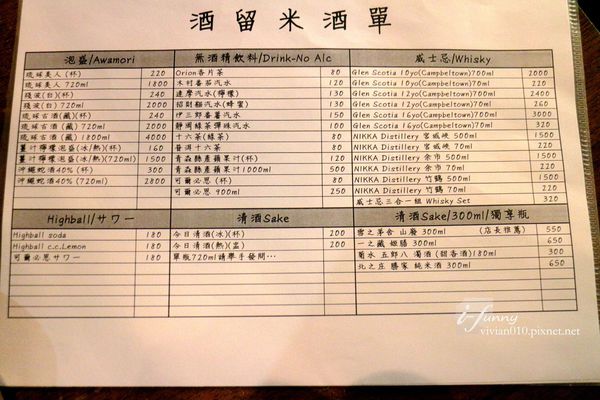 酒留米酒單
泡盛/Awamori
琉球美人 (杯) 220
琉球美人 720ml 1800
殘波(白)(杯) 240
殘波(白) 720ml 2000
琉球古酒(藏)(杯) 240
琉球古酒(藏) 720ml 2000
琉球古酒(藏) 1800ml 4000
薑汁檸檬泡盛(冰/熱)(杯) 160
薑汁檸檬泡盛(冰/熱)(720ml) 1500
沖繩蛇酒40% (杯) 300
沖繩蛇酒40% (720ml) 2800
無酒精飲料/Drink-No Alc
Orion香片茶 80
木村番茄汽水 120
達摩汽水(檸檬) 130
招財貓汽水(蜂蜜) 130
伊三郎番薯汽水 130
靜岡綠茶彈珠汽水 100
十六茶(綠茶) 80
普洱十六茶 80
青森縣產蘋果汁(杯) 120
青森縣產蘋果汁1000ml 500
可爾必思(杯) 80
可爾必思 900ml 250
威士忌/Whisky
Glen Scotia 10yo(Campbeltown)700ml 2000
Glen Scotia 10yo(Campbeltown)70ml 220
Glen Scotia 12yo(Campbeltown)700ml 2400
Glen Scotia 12yo(Campbeltown)70ml 260
Glen Scotia 16yo(Campbeltown)700ml 3000
Glen Scotia 16yo(Campbeltown)70ml 320
NIKKA Distillery 宮城峽 500ml 1500
NIKKA Distillery 宮城峽 70ml 220
NIKKA Distillery 余市 500ml 1500
NIKKA Distillery 余市 70ml 220
NIKKA Distillery 竹鶴 500ml 1500
NIKKA Distillery 竹鶴 70ml 220
威士忌三合一組 Whisky Set 320
Highball/サワー
Highball soda 180
Highball c.c.Lemon 180
可爾必思サワー 180
清酒Sake
今日清酒(冰)(杯) 200
今日清酒(熱)(盅) 200
單瓶720ml請舉手發問…
清酒Sake/300ml/獨享瓶
雪之茅舍 山廢 300ml (店長推薦) 550
一之藏 姬膳 300ml 650
菊水 五郎八 濁酒(甜香酒)180ml 300
北之庄 勝家 純米酒 300ml 650
i-Funny
vivian010.pixnet.net